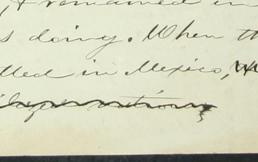 , & remained in
s doing. When th
tled in Mexico,